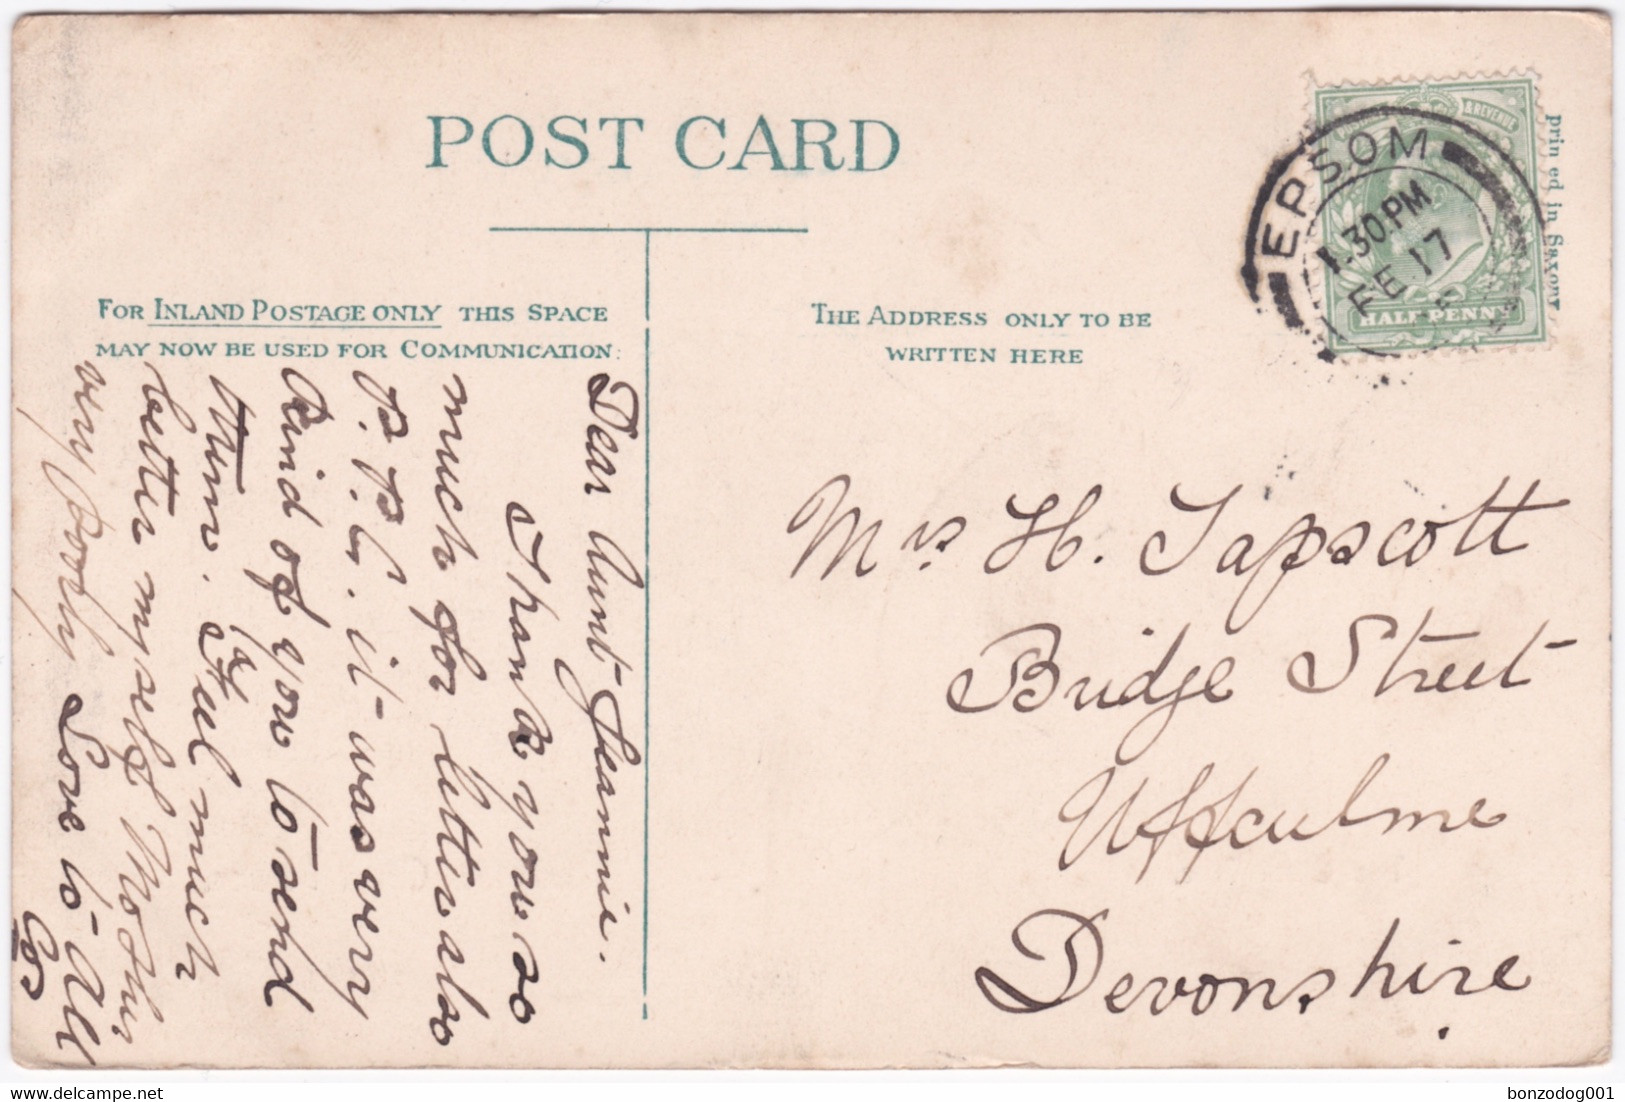 POST CARD
FOR INLAND POSTAGE ONLY THIS SPACE
MAY NOW BE USED FOR COMMUNICATION.
THE ADDRESS ONLY TO BE
WRITTEN HERE
EPSOM
1.30PM
FE 17
HALF PENNY
prin ed in Saxony
Dear Aunt Jeannie.
Thank you so
much for letter also
P.P.C. it was very
kind of you to send
them. Feel much
better myself Mother
very poorly Love to all
Mrs H. Tapscott
Bridge Street
Uffculme
Devonshire.
bonzodog001